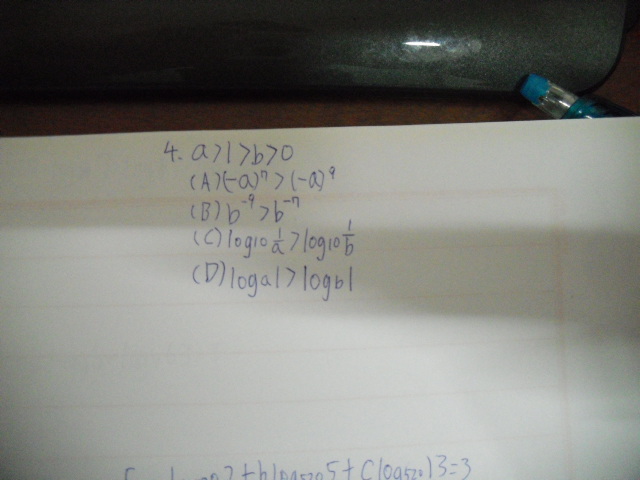 4. a>1>b>0
(A) (-a)⁷>(-a)⁹
(B) b⁻⁹>b⁻⁷
(C) log10 1/a > log10 1/b
(D) loga1>logb1
log520 5+Clog520 13=3